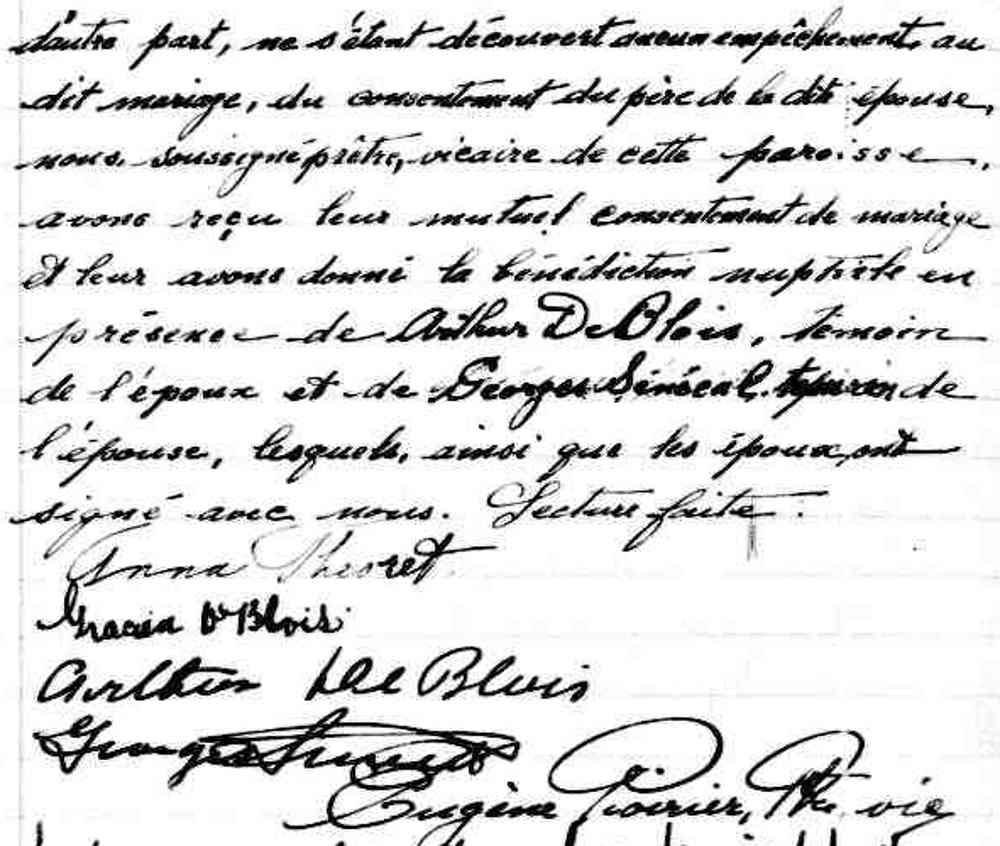 d'autre part, ne s'étant découvert aucun empêchement au
dit mariage, du consentement du père de la dite épouse,
nous soussigné prêtre, vicaire de cette paroisse,
avons reçu leur mutuel consentement de mariage
et leur avons donné la bénédiction nuptiale en
présence de Arthur DeBlois, témoin
de l'époux et de Georges Sénécal, témoin de
l'épouse, lesquels, ainsi que les époux, ont
signé avec nous. Lecture faite.
Anna Theoret
DeBlois
Arthur DeBlois
Georges
Eugène Poirier, Ptre. vic